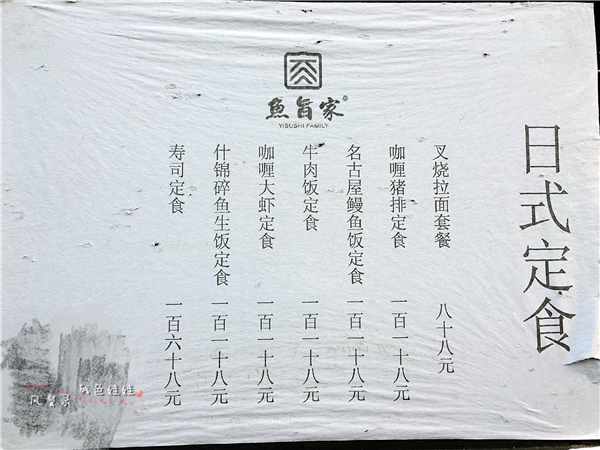 魚旨家
YISUSHI FAMILY
日式定食
叉烧拉面套餐 八十八元
咖喱猪排定食 一百一十八元
名古屋鳗鱼饭定食 一百一十八元
牛肉饭定食 一百一十八元
咖喱大虾定食 一百一十八元
什锦碎鱼生饭定食 一百一十八元
寿司定食 一百六十八元